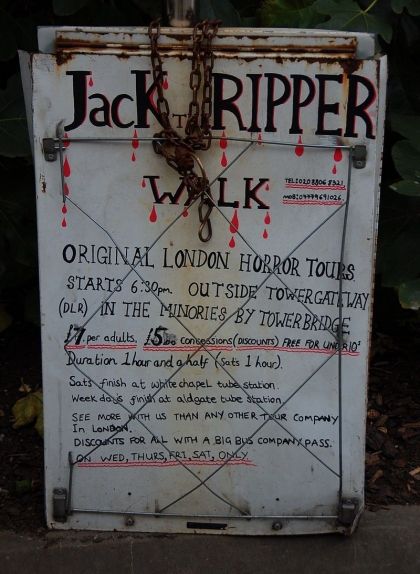 Jack THE RIPPER
WALK
TEL: 0203806 8321
MOB: 07779691026
ORIGINAL LONDON HORROR TOURS
STARTS 6:30pm OUTSIDE TOWERGATEWAY
(DLR) IN THE MINORIES BY TOWERBRIDGE
£7 per adults, £5 concessions (DISCOUNTS) FREE FOR UNDER 10s
Duration 1hour and a half (Sats 1 hour).
Sats finish at whitechapel tube station.
Week days finish at aldgate tube station.
SEE MORE WITH US THAN ANY OTHER TOUR COMPANY
In LONDON.
DISCOUNTS FOR ALL WITH A BIG BUS COMPANY PASS.
ON WED, THURS, FRI, SAT, ONLY